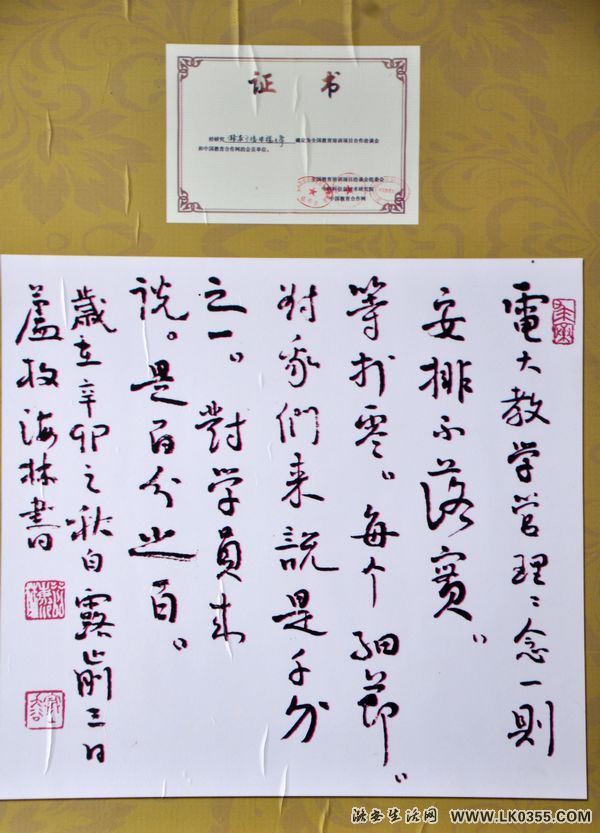 证 书
确定为全国教育培训项目合作洽谈会
和中国教育合作网的会员单位。
全国教育培训项目洽谈会组委会
中国教育合作网
電大教学管理〻念一則
安排不落實。
等於零。每个細節。
對我們来説是千分
之一。對学員来
说。是百分之百。
歲在辛卯之秋白露前三日
蘆牧海林書
潞安生活网 www.LK0355.com